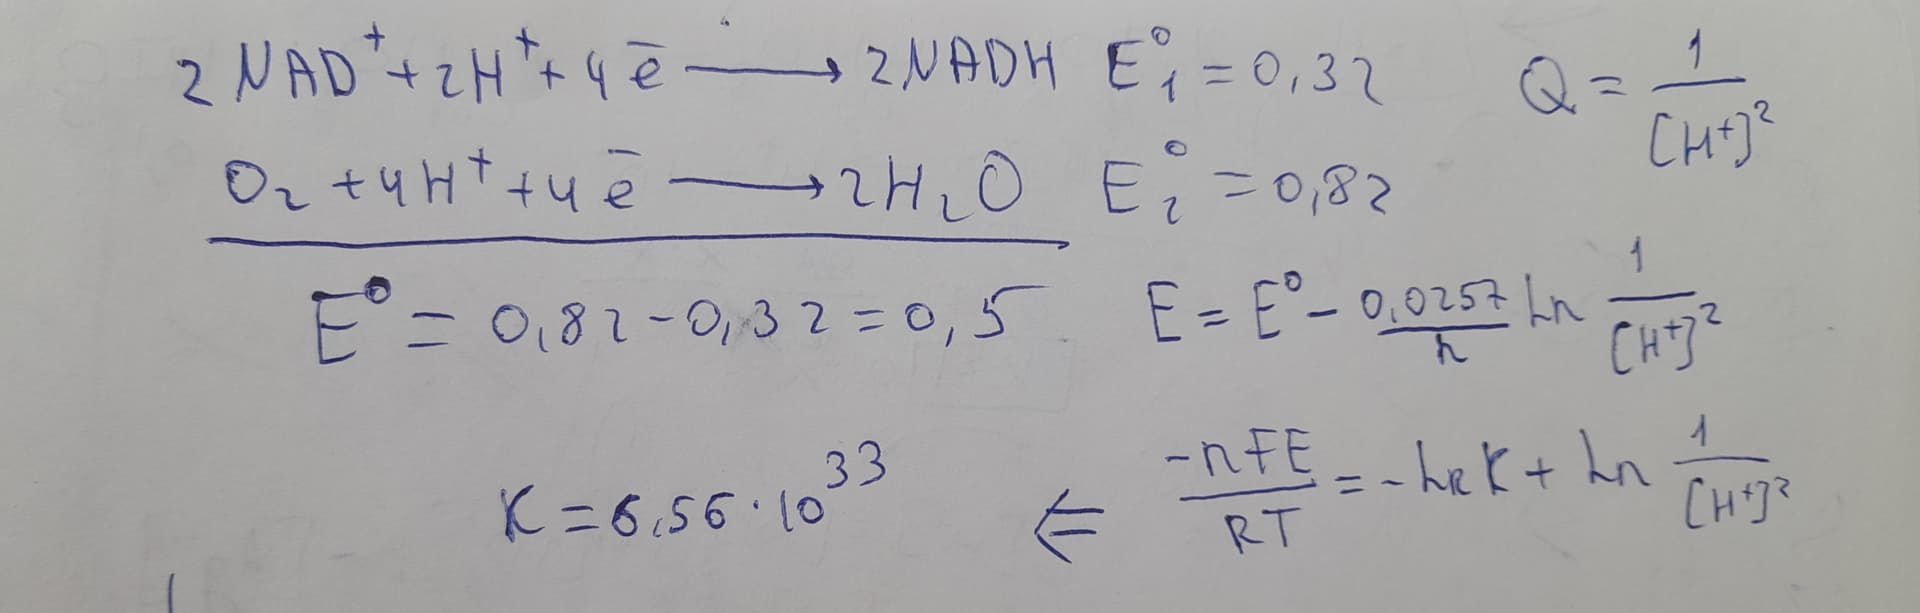 2 NAD⁺ + 2H⁺ + 4ē ⟶ 2NADH E°₁ = 0,32 Q = 1/[H⁺]²
O₂ + 4H⁺ + 4ē ⟶ 2H₂O E°₂ = 0,82
E° = 0,82 - 0,32 = 0,5 E = E° - 0,0257/n Ln 1/[H⁺]²
K = 6,56 · 10³³ ⇐ -nFE/RT = - Ln K + Ln 1/[H⁺]²